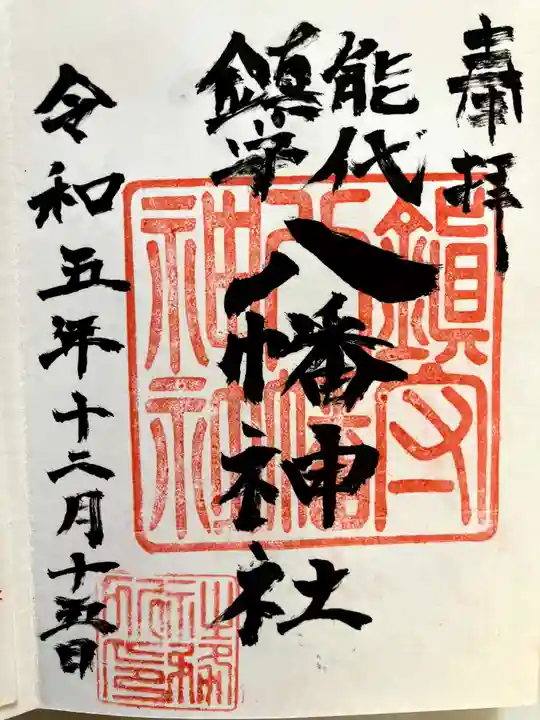 奉拝
能代
鎮守
八幡神社
令和五年十二月十五日
鎮守
八幡
神社